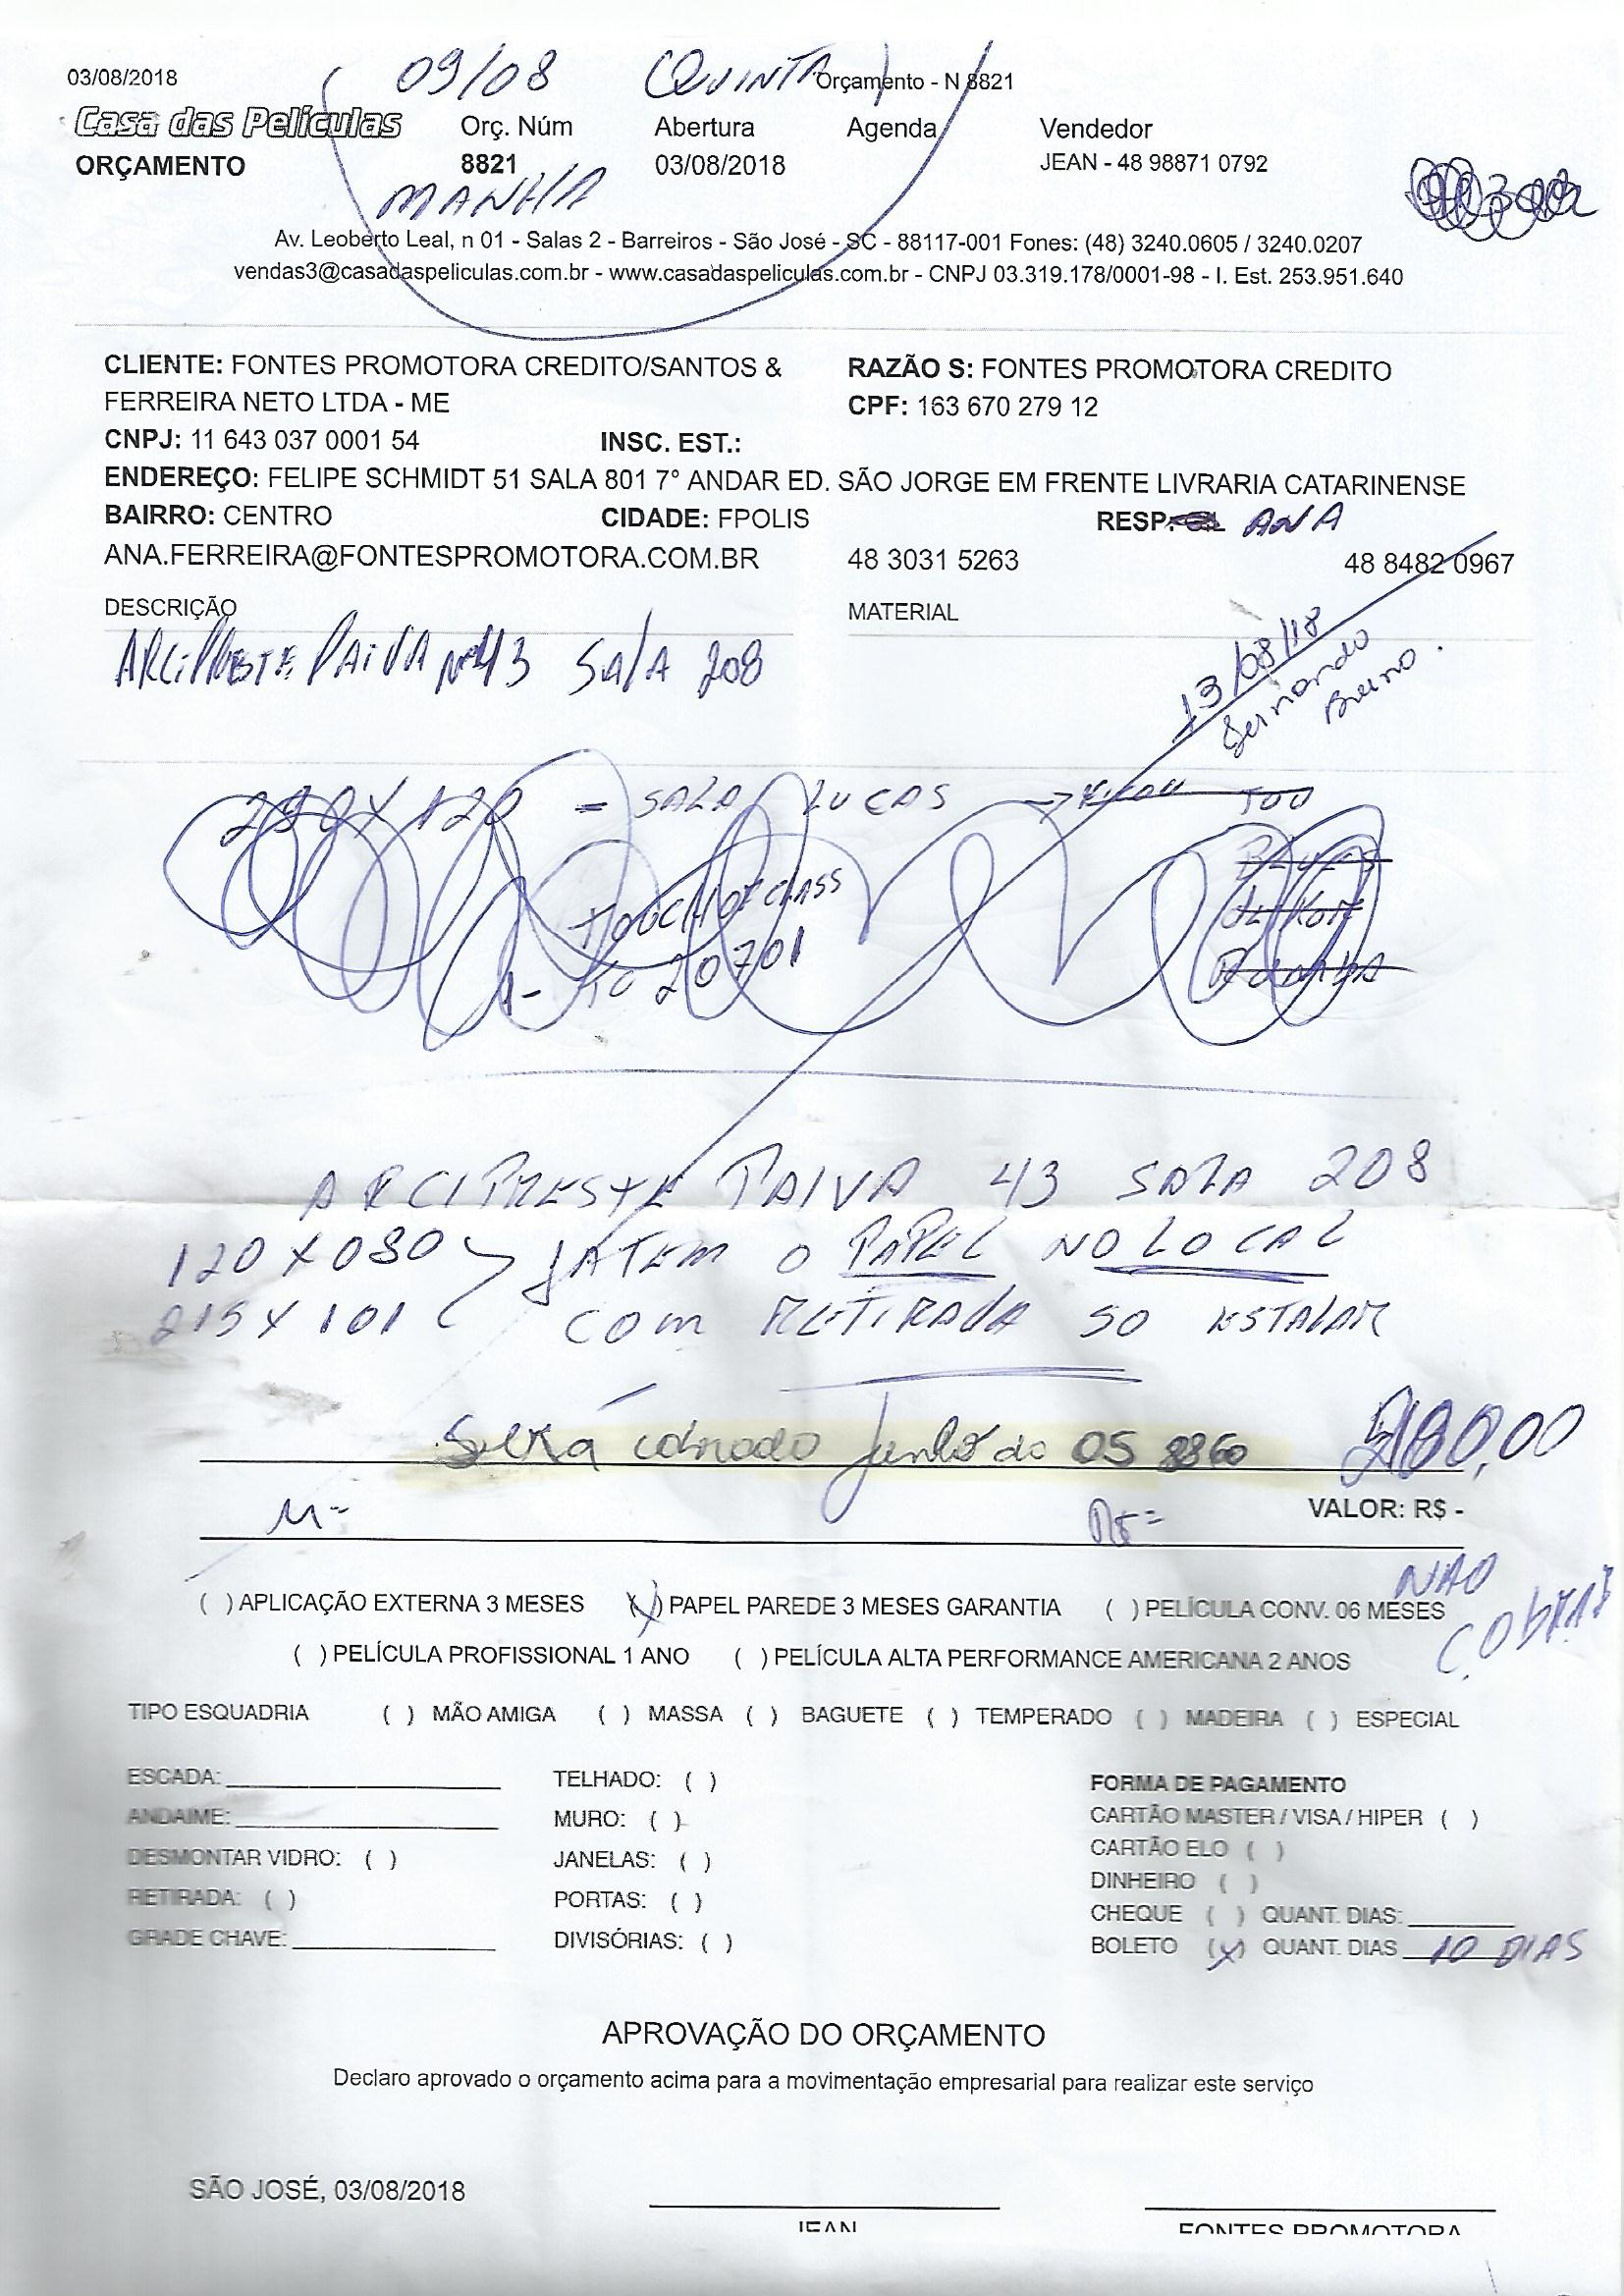 03/08/2018 09/08 (QUINTA) Orçamento - N 8821
Casa das Películas Orç. Núm Abertura Agenda Vendedor
ORÇAMENTO 8821 03/08/2018 JEAN - 48 98871 0792
MANHÃ
Av. Leoberto Leal, n 01 - Salas 2 - Barreiros - São José - SC - 88117-001 Fones: (48) 3240.0605 / 3240.0207
vendas3@casadaspeliculas.com.br - www.casadaspeliculas.com.br - CNPJ 03.319.178/0001-98 - I. Est. 253.951.640
CLIENTE: FONTES PROMOTORA CREDITO/SANTOS & RAZÃO S: FONTES PROMOTORA CREDITO
FERREIRA NETO LTDA - ME CPF: 163 670 279 12
CNPJ: 11 643 037 0001 54 INSC. EST.:
ENDEREÇO: FELIPE SCHMIDT 51 SALA 801 7° ANDAR ED. SÃO JORGE EM FRENTE LIVRARIA CATARINENSE
BAIRRO: CENTRO CIDADE: FPOLIS RESP: ANA
ANA.FERREIRA@FONTESPROMOTORA.COM.BR 48 3031 5263 48 8482 0967
DESCRIÇÃO MATERIAL
ARCIPRESTE PAIVA Nº 43 SALA 208
13/08/18
Fernando
Bruno.
290 X 120 = SALA LUCAS
1- 20701
ARCIPRESTE PAIVA 43 SALA 208
120 X 080 JA TEM O PAPEL NO LOCAL
215 X 101 COM RETIRADA SO
Será cobrado junto do OS 8860 180,00
M= VALOR: R$ -
NÃO COBRAR
( ) APLICAÇÃO EXTERNA 3 MESES (X) PAPEL PAREDE 3 MESES GARANTIA ( ) PELÍCULA CONV. 06 MESES
( ) PELÍCULA PROFISSIONAL 1 ANO ( ) PELÍCULA ALTA PERFORMANCE AMERICANA 2 ANOS
TIPO ESQUADRIA ( ) MÃO AMIGA ( ) MASSA ( ) BAGUETE ( ) TEMPERADO ( ) MADEIRA ( ) ESPECIAL
ESCADA: TELHADO: ( ) FORMA DE PAGAMENTO
ANDAIME: MURO: ( ) CARTÃO MASTER / VISA / HIPER ( )
DESMONTAR VIDRO: ( ) JANELAS: ( ) CARTÃO ELO ( )
DINHEIRO ( )
RETIRADA: ( ) PORTAS: ( ) CHEQUE ( ) QUANT. DIAS:
GRADE CHAVE: DIVISÓRIAS: ( ) BOLETO (X) QUANT. DIAS 10 DIAS
APROVAÇÃO DO ORÇAMENTO
Declaro aprovado o orçamento acima para a movimentação empresarial para realizar este serviço
SÃO JOSÉ, 03/08/2018
JEAN FONTES PROMOTORA